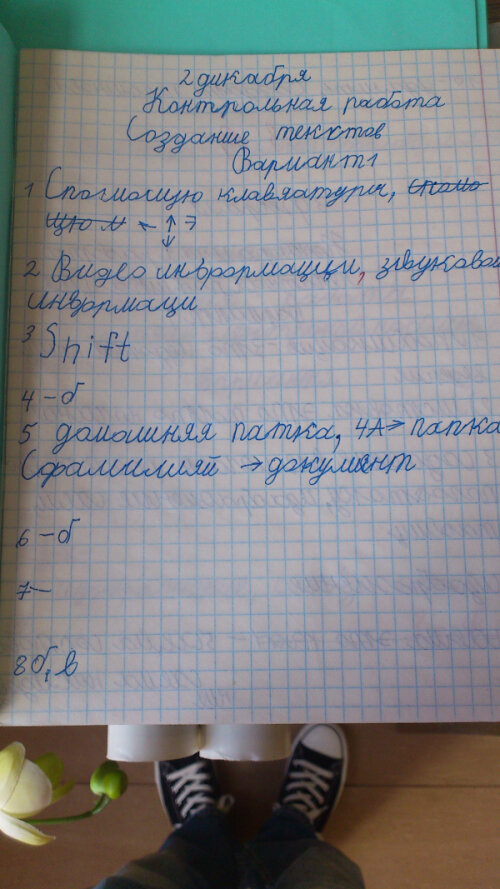 2 дикабря
Контрольная работа
Создание текктов
Вариант 1
1 Спомощую клавяатуры, спомо
щую м ← ↕ →
2 Видео информации, звуковой
информаци
3 Shift
4 - б
5 домошняя патка, 4А → папка
С фамилияй → докумынт
6 - б
7-
8 б, в